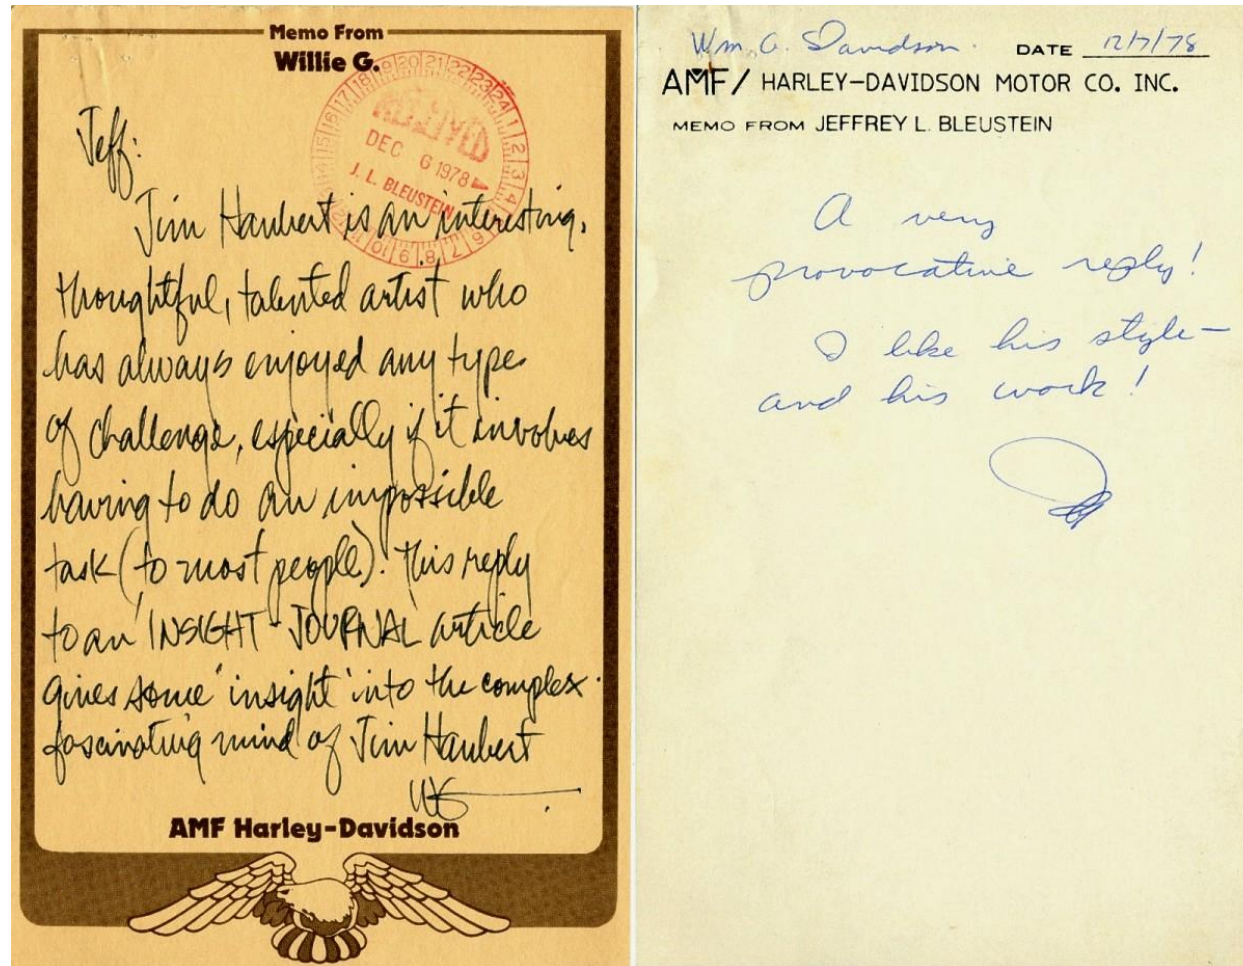 Memo From
Willie G.
RECEIVED
DEC 6 1978
J. L. BLEUSTEIN
24 1 2 3 4 6 7 8 9 10 11 12 14 15 16 17 18 19 20 21 22 23
Jeff:
Jim Haubert is an interesting,
thoughtful, talented artist who
has always enjoyed any type
of challenge, especially if it involves
having to do an impossible
task (to most people). This reply
to an INSIGHT-JOURNAL article
gives some "insight" into the complex
fascinating mind of Jim Haubert
WG
AMF Harley-Davidson
Wm G. Davidson DATE 12/7/78
AMF/ HARLEY-DAVIDSON MOTOR CO. INC.
MEMO FROM JEFFREY L. BLEUSTEIN
A very
provocative reply!
I like his style—
and his work!